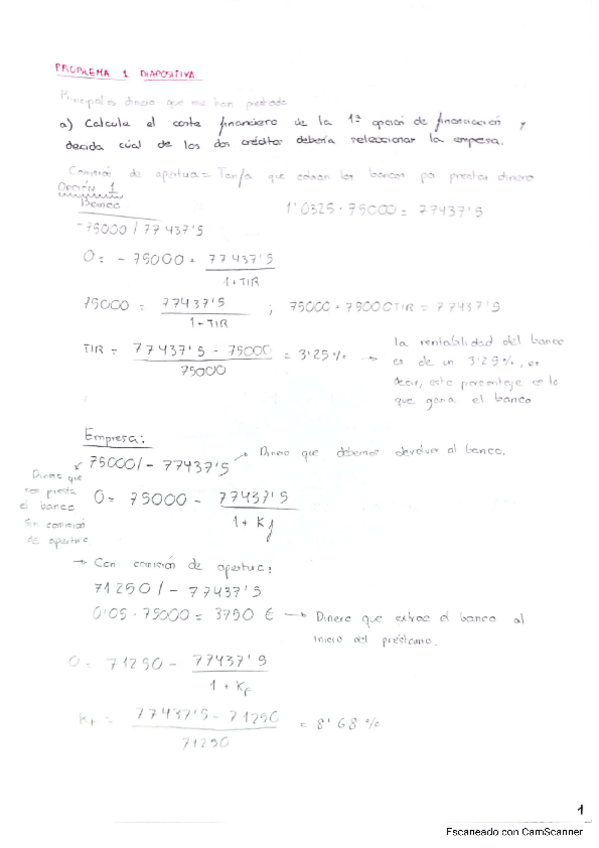 PROBLEMA 1 DIAPOSITIVA
Principal = dinero que me han prestado
a) Calcula el coste financiero de la 1ª opción de financiación y
decida cúal de los dos créditos debería seleccionar la empresa.
Comisión de apertura = Tarifa que cobran los bancos por prestar dinero
Opción 1
Banco
1'0325 · 75000 = 77437'5
-75000 / 77437'5
0 = - 75000 + 77437'5 / 1+TIR
75000 = 77437'5 / 1+TIR ; 75000 + 75000TIR = 77437'5
TIR = 77437'5 - 75000 / 75000 = 3'25 % →
la rentabilidad del banco
es de un 3'25%, es
decir, este porcentaje es lo
que gana el banco
Empresa:
75000 / - 77437'5 → Dinero que debemos devolver al banco.
Dinero que
nos presta
el banco
sin comisión
de apertura
0 = 75000 - 77437'5 / 1 + Kf
→ Con comisión de apertura:
71250 / - 77437'5
0'05 · 75000 = 3750 € → Dinero que extrae el banco al
inicio del préstamo.
0 = 71250 - 77437'5 / 1 + Kf
Kf = 77437'5 - 71250 / 71250 = 8'68 %
1
Escaneado con CamScanner